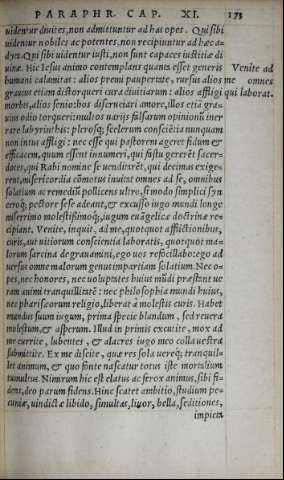 PARAPHR. CAP. XI. 175
uidentur diuites, non admittuntur ad has opes. Qui sibi
uidentur nobiles ac potentes, non recipiuntur ad hæc a-
dyta. Qui sibi uidentur iusti, non sunt capaces iustitiæ di
uinæ. Hic Iesus animo contemplans quanta esset generis
humani calamitas: alios premi paupertate, rursus alios
grauius etiam distorqueri cura diuitiarum: alios affligi
morbis, alios senio: hos discruciari amore, illos etiã gra-
uius odio torqueri: multos uarijs falsarum opinionũ iner
rare labyrinthis: plerosq; scelerum consciẽtia nunquam
non intus affligi: nec esse qui pastorem ageret fidum &
efficacem, quum essent innumeri, qui fastu gererẽt sacer-
dotes, qui Rabi nomine se uenditarẽt, qui decimas exige-
rent, misericordia cõmotus inuitat omnes ad se, omnibus
solatium ac remediũ pollicens ultro, si modo simplici syn
ceroq; pectore sese adeant, & excusso iugo mundi longe
miserrimo molestissimoq;, iugum euãgelicæ doctrinæ re-
cipiant. Venite, inquit, ad me, quotquot afflictionibus,
curis, aut uitiorum conscientia laboratis, quotquot ma-
lorum sarcina degrauamini, ego uos refocillabo: ego ad
uersus omne malorum genus impartiam solatium. Nec o-
pes, nec honores, nec uoluptates huius mũdi præstant ue
ram animi tranquillitatẽ: nec philosophia mundi huius,
nec pharisæorum religio, liberat à molestis curis. Habet
mundus suum iugum, prima specie blandum, sed reuera
molestum, & asperum. Illud in primis excutite, mox ad
me currite, lubentes, & alacres iugo meo colla uestra
submittite. Ex me discite, quæ res sola uereq; tranquil-
let animum, & quo fonte nascatur totus iste mortalium
tumultus. Nimirum hic est elatus ac ferox animus, sibi fi-
dens, deo parum fidens. Hinc scatet ambitio, studium pe-
cuniæ, uindictæ libido, simultas, liuor, bella, seditiones,
impiem
Venite ad
me omnes
qui laborat.